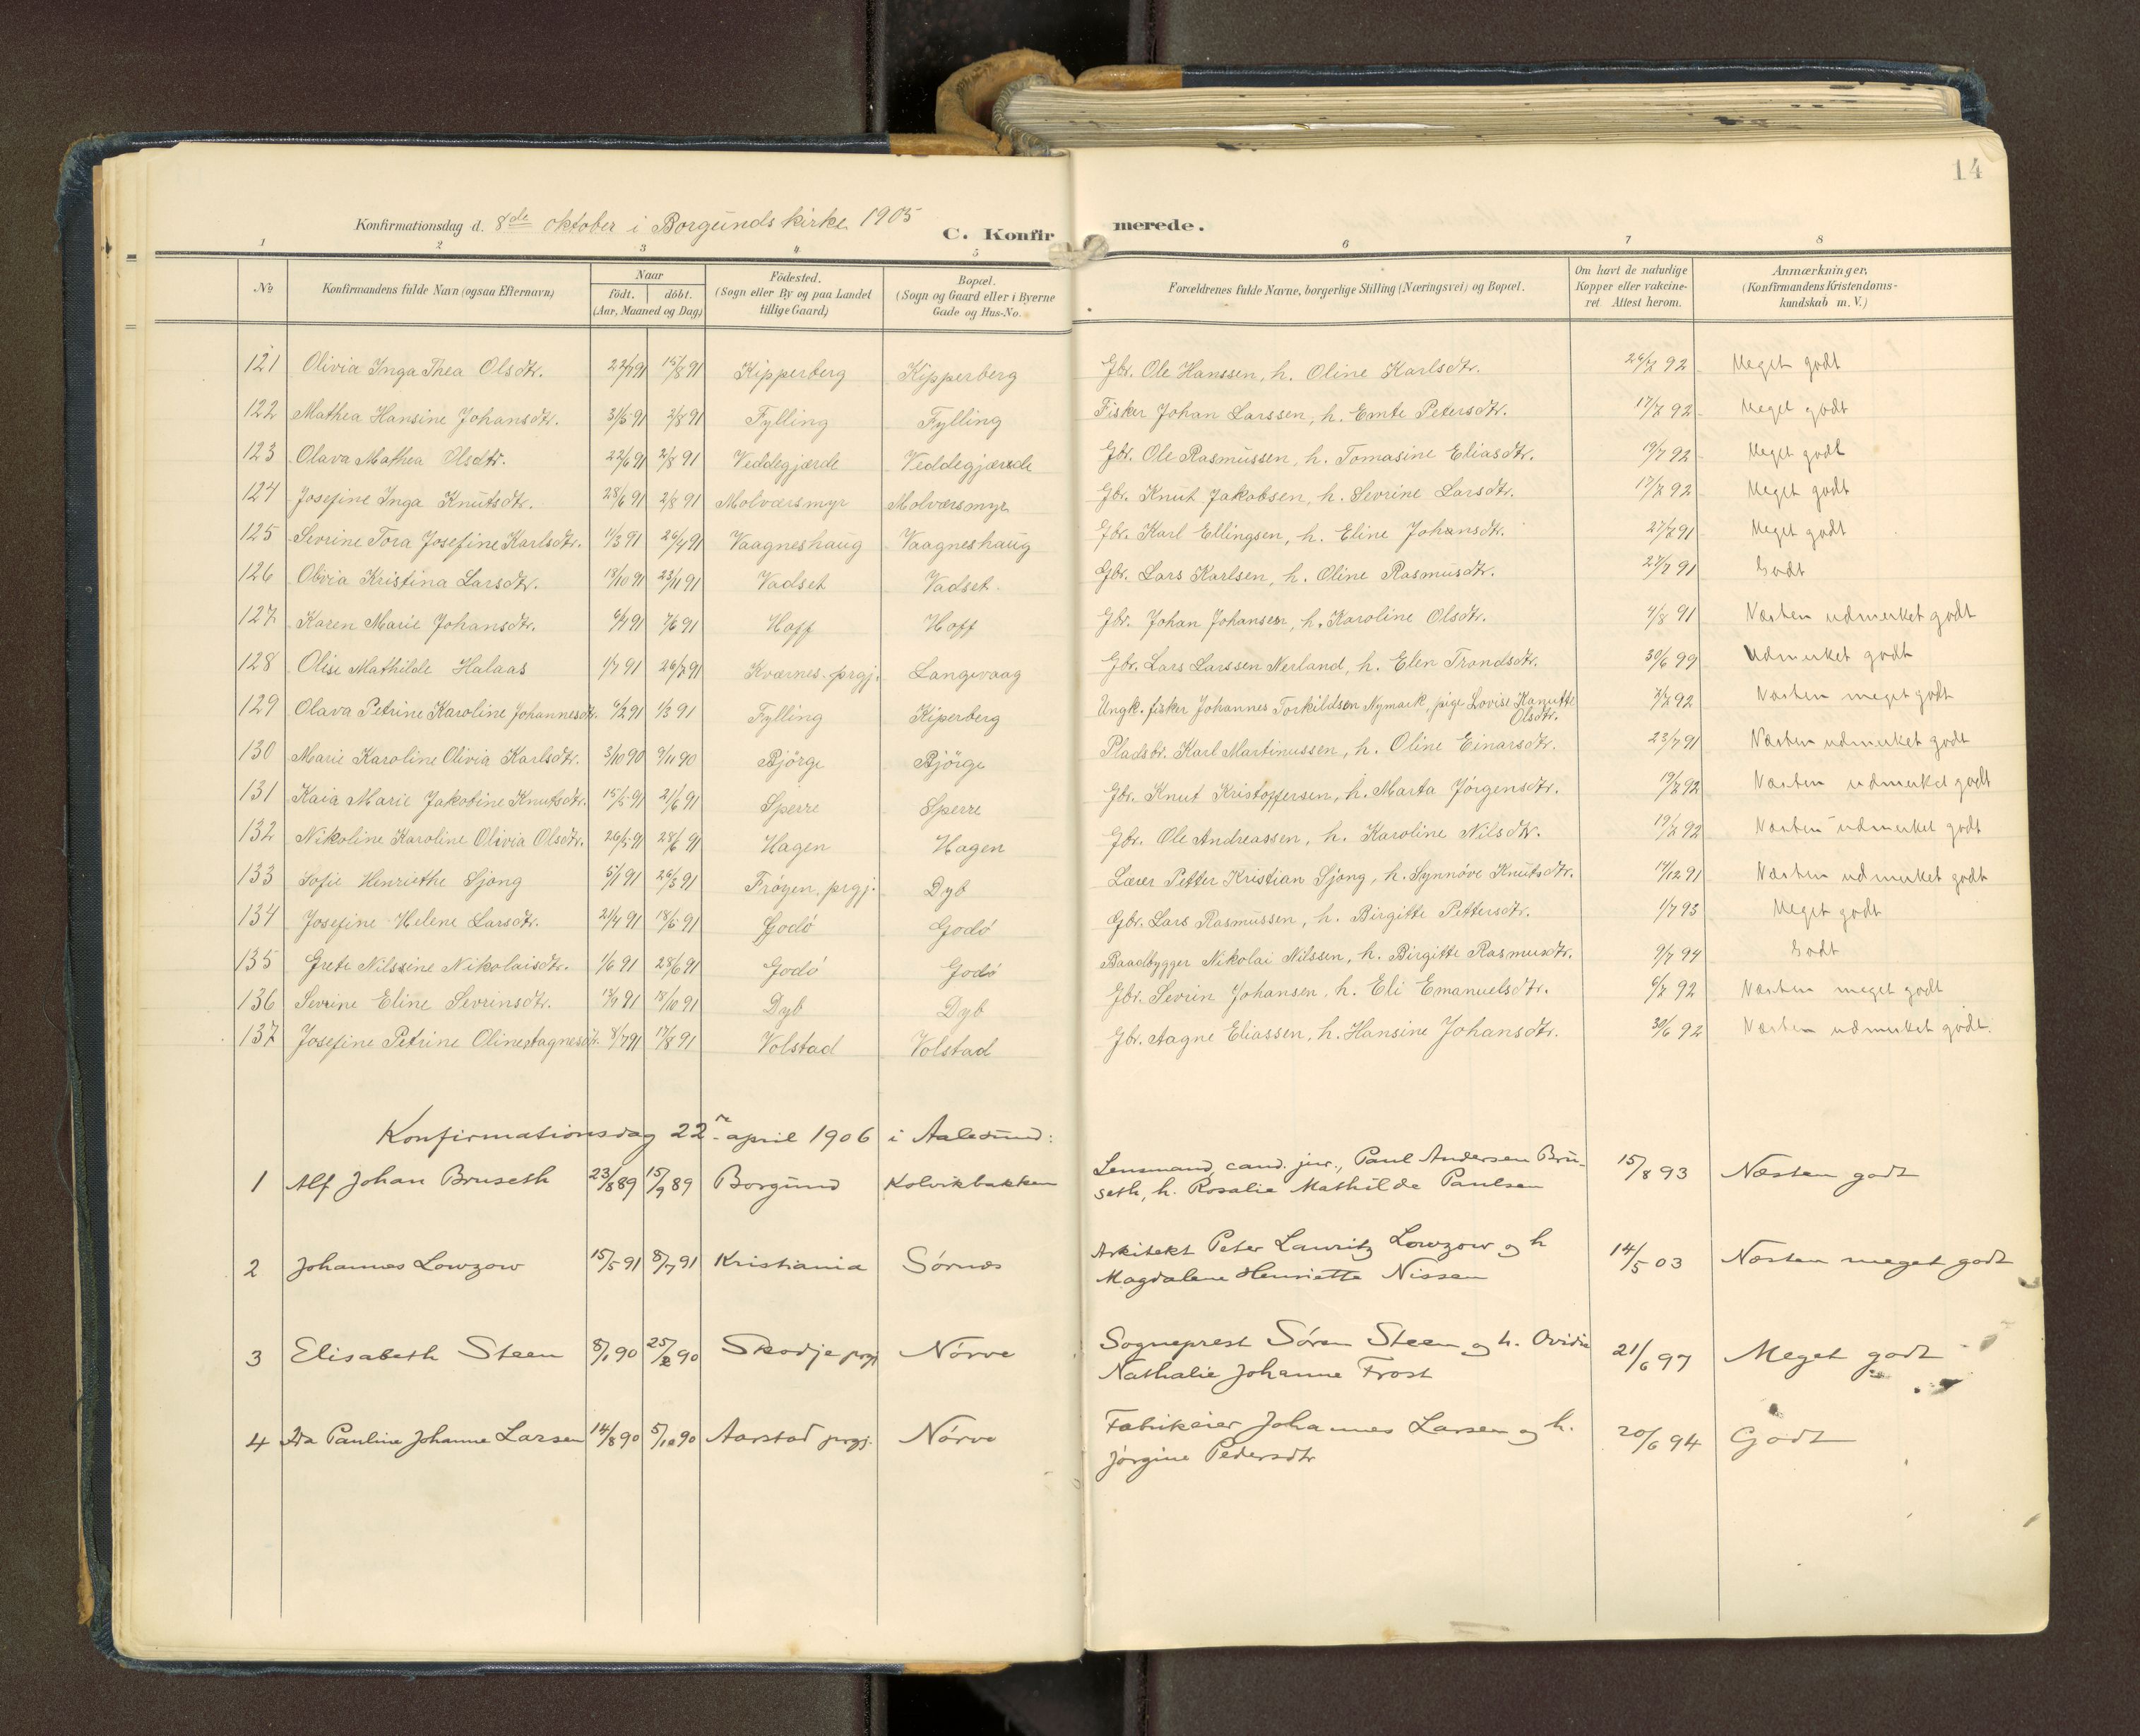 14
Konfirmationsdag d. 8de oktober i Borgunds kirke 1905
C. Konfirmerede.
1 2 3 4 5 6 7 8
No Konfirmandens fulde Navn (ogsaa Efternavn) Naar født. døbt. (Aar, Maaned og Dag) Födested. (Sogn eller By og paa Landet tillige Gaard) Bopæl. (Sogn og Gaard eller i Byerne Gade og Hus-No. Forældrenes fulde Navne, borgerlige Stilling (Næringsvei) og Bopæl. Om havt de naturlige Kopper eller vakcineret. Attest herom. Anmærkninger, (Konfirmandens Kristendomskundskab m. V.)
121 Olivia Inga Thea Olsdtr. 22/7 91 15/8 91 Kipperberg Kipperberg Gbr. Ole Hanssen, h. Oline Karlsdtr. 26/7 92 Meget godt
122 Mathea Hansine Johansdtr. 31/5 91 2/8 91 Fylling Fylling Fisker Johan Larssen, h. Emte Petersdtr. 17/7 92 Meget godt
123 Olava Mathea Olsdtr. 22/6 91 2/8 91 Veddegjærde Veddegjærde Gbr. Ole Rasmussen, h. Tomasine Eliasdtr. 19/7 92 Meget godt
124 Josefine Inga Knutsdtr. 28/6 91 2/8 91 Molværsmyr Molværsmyr Gbr. Knut Jakobsen, h. Sevrine Larsdtr. 17/7 92 Meget godt
125 Sevrine Tora Josefine Karlsdtr. 11/3 91 26/4 91 Vaagneshaug Vaagneshaug Gbr. Karl Ellingsen, h. Eline Johansdtr. 27/7 91 Meget godt
126 Olivia Kristina Larsdtr. 18/10 91 23/11 91 Vadset Vadset. Gbr. Lars Karlsen, h. Oline Rasmusdtr. 27/7 91 Godt
127 Karen Marie Johansdtr. 6/4 91 7/6 91 Hoff Hoff Gbr. Johan Johansen, h. Karoline Olsdtr. 4/8 91 Næsten udmerket godt
128 Olise Mathilde Halaas 1/7 91 26/7 91 Kværnes prgj. Langevaag Gbr. Lars Larssen Nerland, h. Elen Trondsdtr. 30/6 99 Udmerket godt
129 Olava Petrine Karoline Johannesdtr. 6/2 91 1/3 91 Fylling Kiperberg Ungk. fisker Johannes Torkildsen Nymark, pige Lovise Hanutte Olsdtr. 7/7 92 Næsten meget godt
130 Marie Karoline Olivia Karlsdtr. 3/10 90 9/11 90 Bjørge Bjørge Pladsbr. Karl Martinussen, h. Oline Einarsdtr. 23/7 91 Næsten udmerket godt
131 Kaia Marie Jakobine Knutsdtr. 15/5 91 21/6 91 Sperre Sperre Gbr. Knut Kristoffersen, h. Marta Jørgensdtr. 19/7 92 Næsten udmerket godt
132 Nikoline Karoline Olivia Olsdtr. 26/5 91 28/6 91 Hagen Hagen Gbr. Ole Andreassen, h. Karoline Nilsdtr. 19/7 92 Næsten udmerket godt
133 Sofie Henriethe Sjong 5/1 91 26/3 91 Frøyen prgj. Dyb Lærer Petter Kristian Sjong, h. Synnøve Knutsdtr. 17/12 91 Næsten udmerket godt
134 Josefine Helene Larsdtr. 21/4 91 18/5 91 Godø Godø Gbr. Lars Rasmussen, h. Birgitte Pettersdtr. 1/7 93 Meget godt
135 Grete Nilssine Nikolaisdtr. 1/6 91 28/6 91 Godø Godø Baadbygger Nikolai Nilssen, h. Birgitte Rasmusdtr. 9/7 94 Godt
136 Sevrine Eline Sevrinsdtr. 13/9 91 18/10 91 Dyb Dyb Gbr. Sevrin Johansen, h. Eli Emanuelsdtr. 6/7 92 Næsten meget godt
137 Josefine Petrine Oline Aagnesdtr. 8/7 91 17/8 91 Volstad Volstad Gbr. Aagne Eliassen, h. Hansine Johansdtr. 30/6 92 Næsten udmerket godt.
Konfirmationsdag 22 april 1906 i Aalesund:
1 Alf Johan Bruseth 23/8 89 15/9 89 Borgund Kolvikbakken Lensmand, cand. jur., Paul Andersen Bruseth, h. Rosalie Mathilde Paulsen 15/8 93 Næsten godt
2 Johannes Lowzow 15/5 91 8/7 91 Kristiania Sørnes Arkitekt Peter Lauritz Lowzow og h Magdalene Henriette Nissen 14/5 03 Næsten meget godt
3 Elisabeth Steen 8/1 90 25/2 90 Skodje prgj Nørve Sogneprest Søren Steen og h. Ovidia Nathalie Johanne Frost 21/6 97 Meget godt
4 Ida Pauline Johanne Larsen 14/8 90 5/10 90 Aarstad prgj. Nørve Fabrikeier Johannes Larsen og h. Jørgine Pedersdtr 20/6 94 Godt